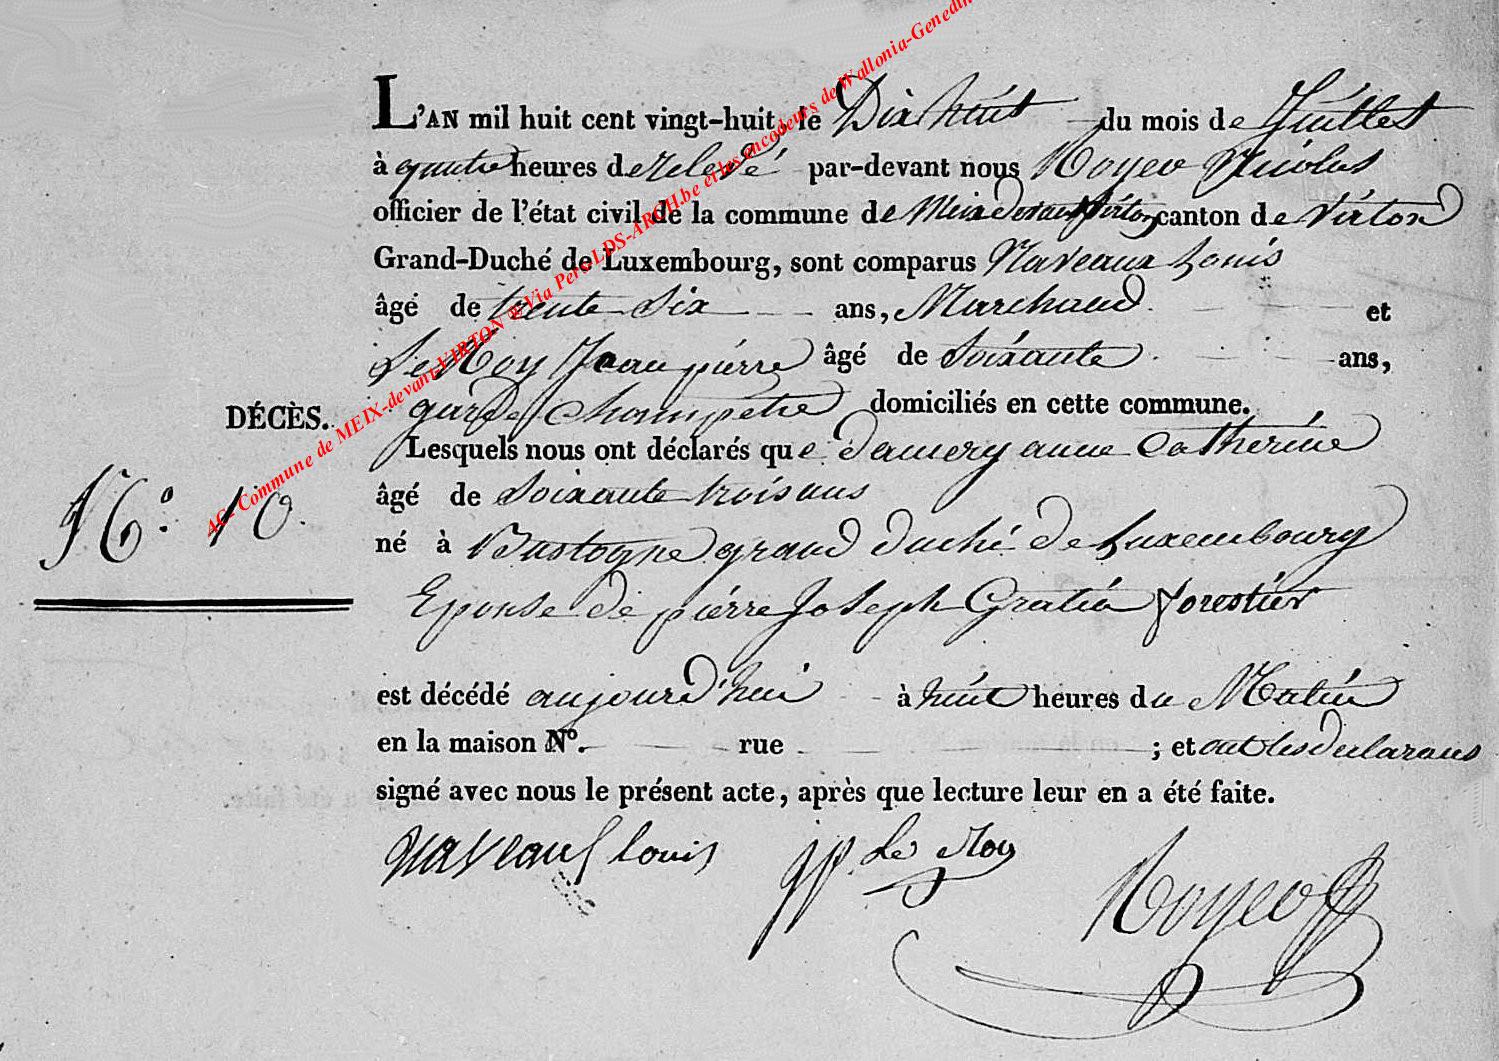 L'AN mil huit cent vingt-huit, le Dix huit du mois de Juillet
à quatre heures de relevé par-devant nous Royer Nicolas
officier de l'état civil de la commune de Meix devant Virton canton de Virton
Grand-Duché de Luxembourg, sont comparus Naveaux Louis
âgé de trente Six ans, Marchand et
Le Roy Jean pierre âgé de Soixante ans,
garde Champetre domiciliés en cette commune.
DÉCÈS.
Lesquels nous ont déclarés que damery anne Catherine
N°. 10.
âgé de Soixante trois ans
né à Bastogne grand duché de Luxembourg
Epouse de pierre Joseph Gratia forestier
est décédé aujourd'hui à huit heures du Matin
en la maison N°. rue ; et ont les declarans
signé avec nous le présent acte, après que lecture leur en a été faite.
naveaux louis jp Le Roy Royer
AC- Commune de MEIX-devant-VIRTON @ Via Pers-LDS-ARCH.be et les encodeurs de Wallonia-Genedin